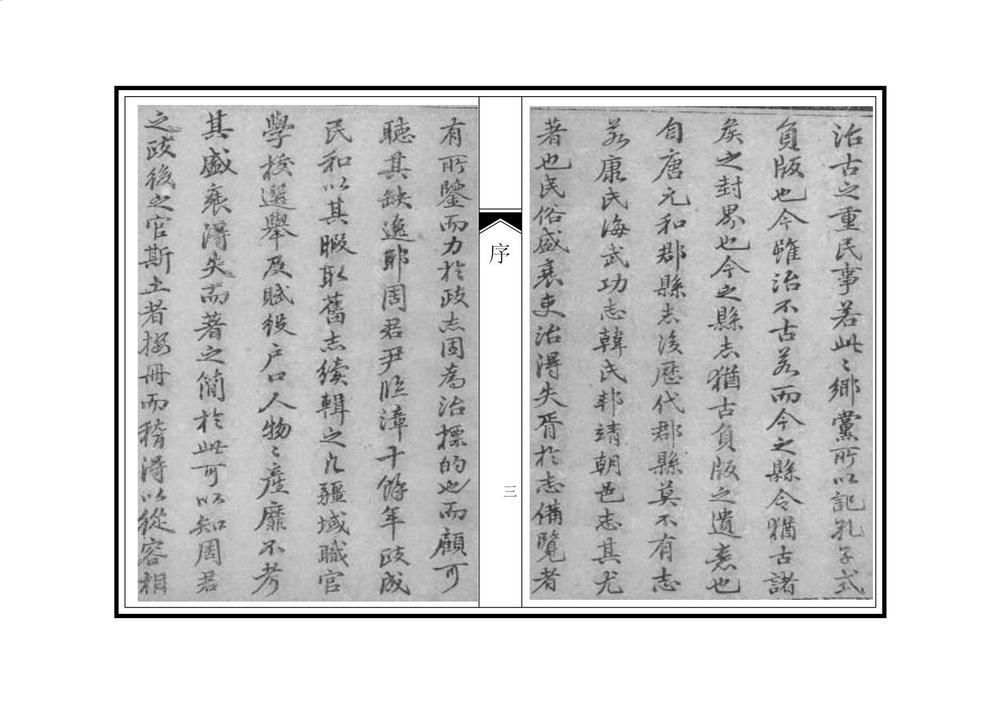 治古之重民事若此〻鄉黨所以記孔子式
負版也今雖治不古若而今之縣令猶古諸
矦之封界也今之縣志猶古負版之遺意也
自唐元和郡縣志後歷代郡縣莫不有志
若康氏海武功志韓氏邦靖朝邑志其尤
著也民俗盛衰吏治得失胥於志備覽者
序
三
有所鑒而力於政志固為治標的也而顧可
聽其缺逸耶周君尹臨漳十餘年政成
民和以其暇取舊志續輯之凡疆域職官
學校選舉及賦役户口人物〻產靡不考
其盛衰得失而著之簡於此可以知周君
之政後之官斯土者按冊而稽得以從容相